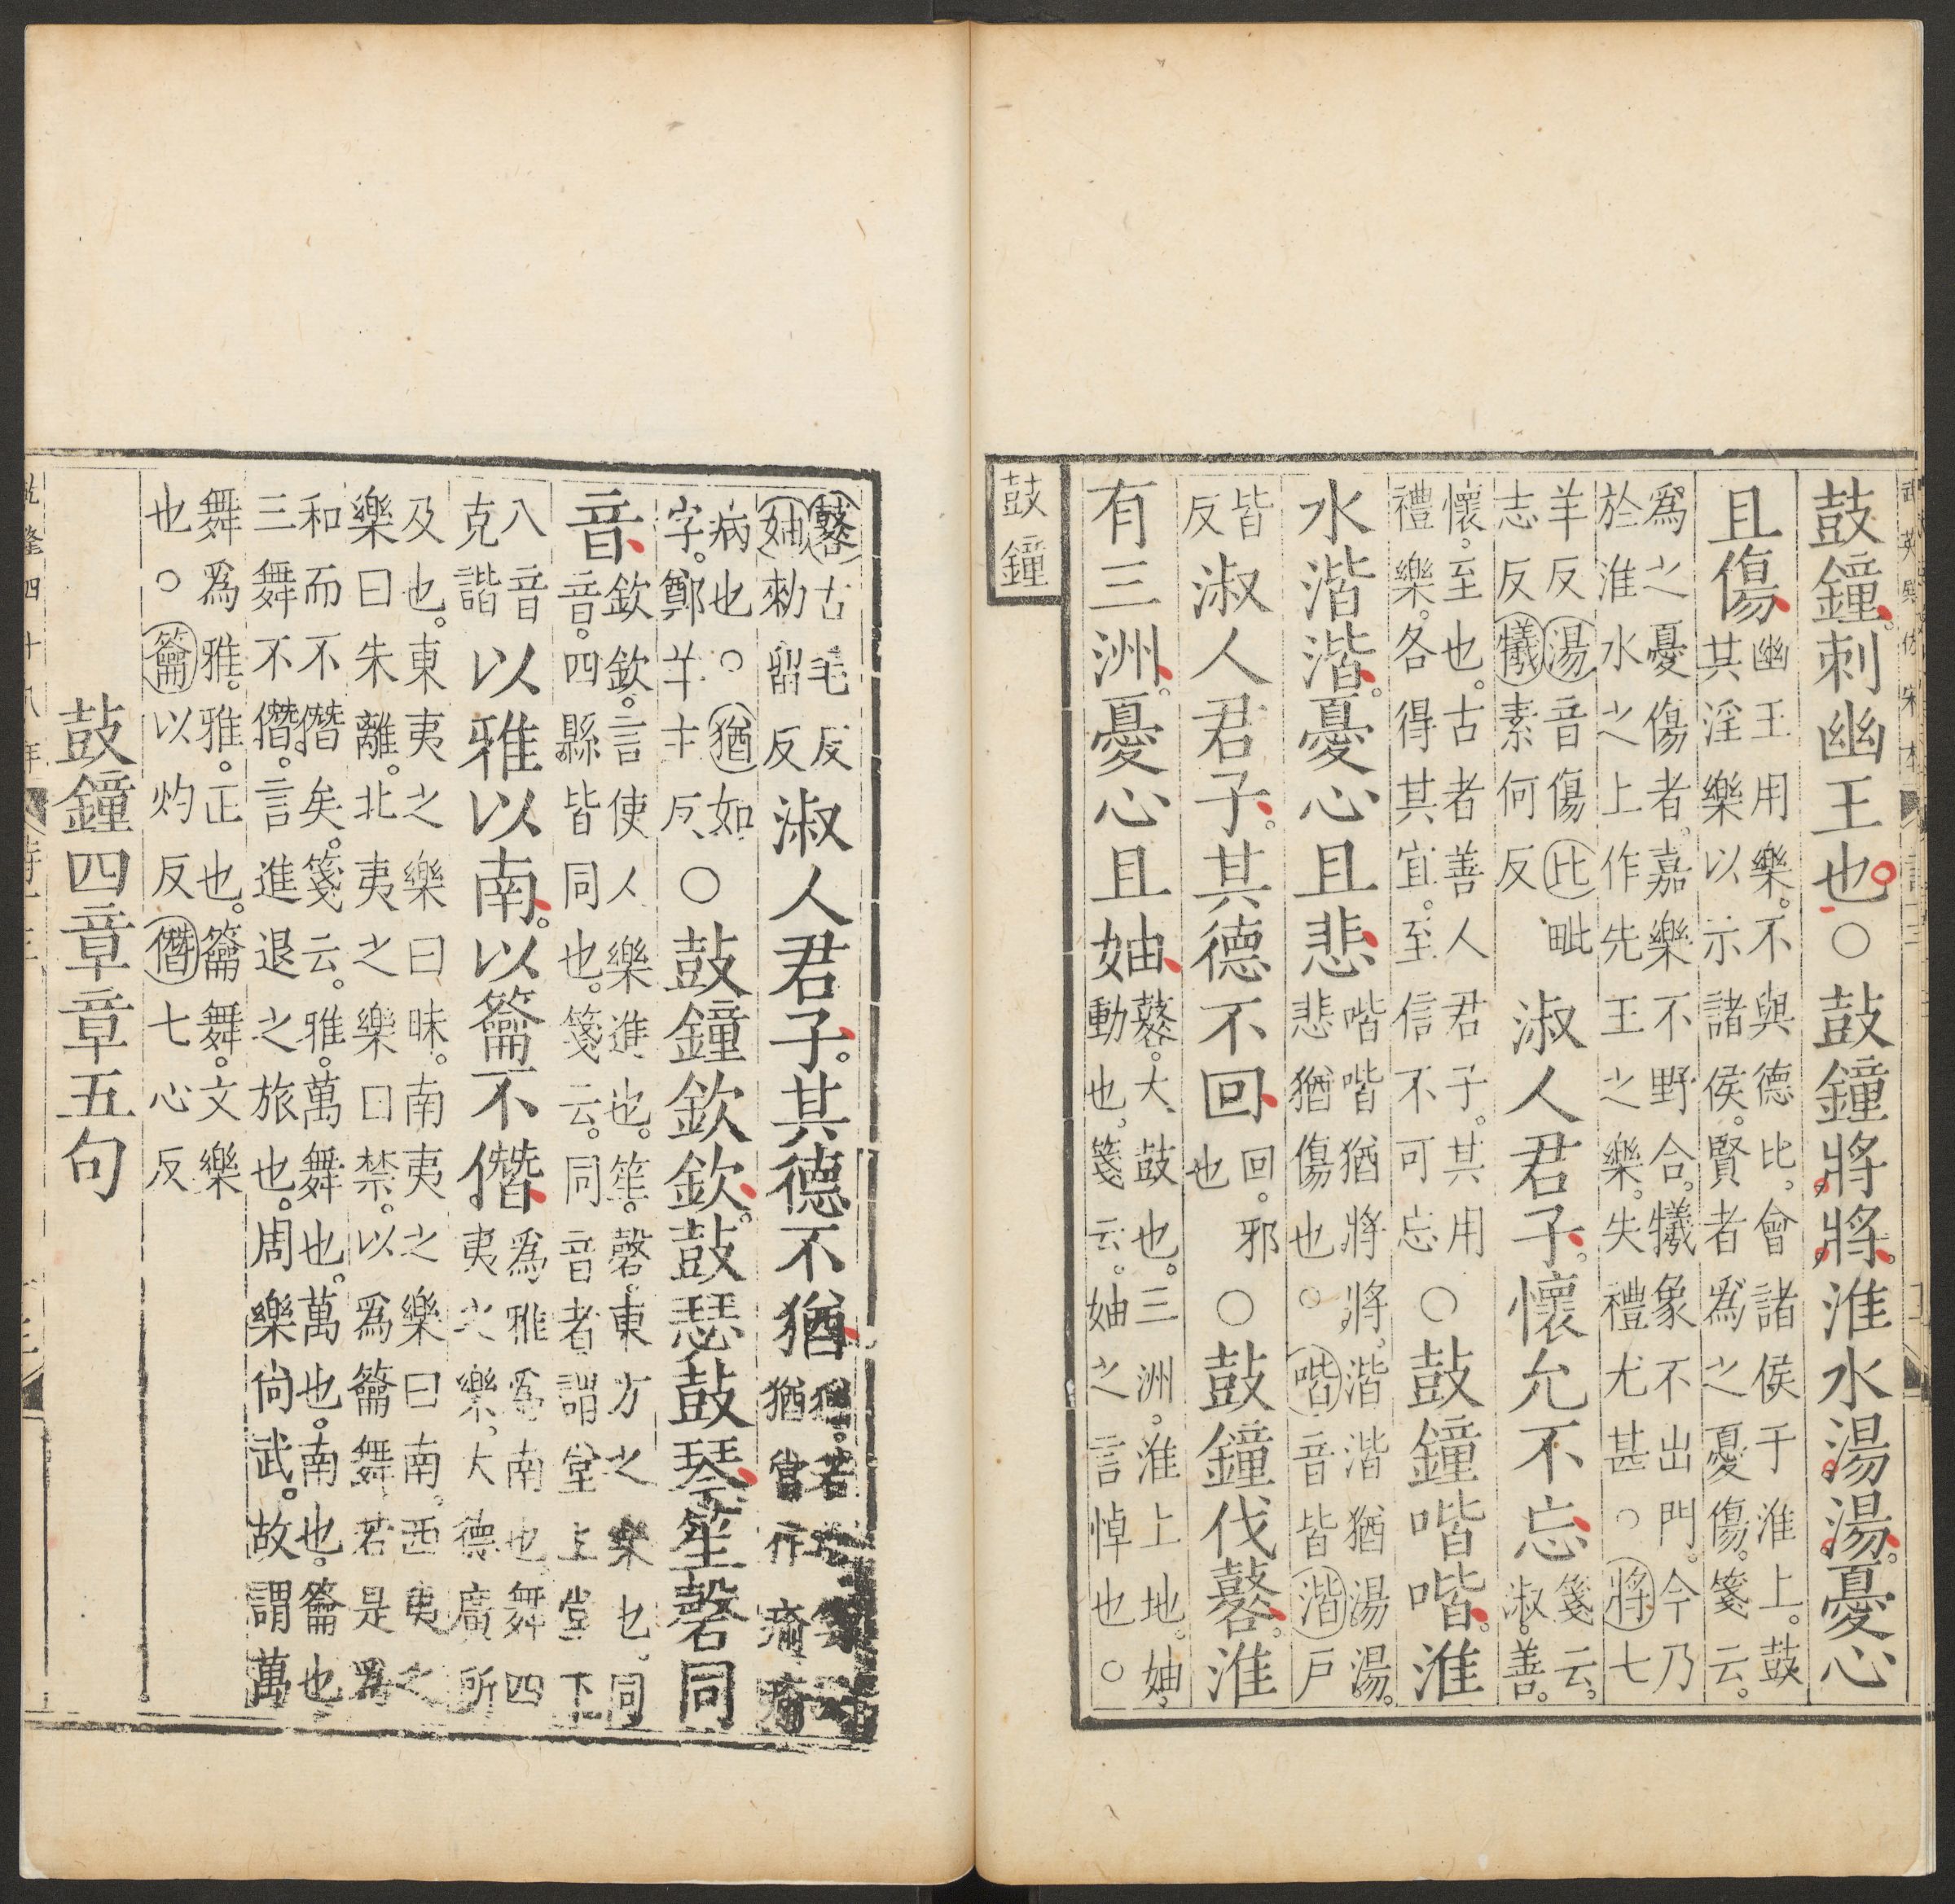 武英殿仿宋本
鼓鐘刺幽王也○鼓鐘將將淮水湯湯憂心
且傷幽王用樂不與德比會諸侯于淮上鼓其淫樂以示諸侯賢者爲之憂傷箋云
爲之憂傷者嘉樂不野合犧象不出門今乃於淮水之上作先王之樂失禮尤甚○將七
羊反湯音傷比毗志反犧素何反淑人君子懷允不忘箋云淑善
懷至也古者善人君子其用禮樂各得其宜至信不可忘○鼓鐘喈喈淮
水湝湝憂心且悲喈喈猶將將湝湝猶湯湯悲猶傷也○喈音皆湝戶
皆反淑人君子其德不回回邪也○鼓鐘伐鼛淮
有三洲憂心且妯鼛大鼓也三洲淮上地妯動也箋云妯之言悼也○
鼓鐘
鼛古毛反妯勑留反淑人君子其德不猶猶若猶當作瘉瘉
病也○猶如字鄭羊主反○鼓鐘欽欽鼓瑟鼓琴笙磬同
音欽欽言使人樂進也笙磬東方之樂也同音四縣皆同也箋云同音者謂堂上堂下
八音克諧以雅以南以籥不僭爲雅爲南也舞四夷之樂大德廣所
及也東夷之樂曰昧南夷之樂曰南西夷之樂曰朱離北夷之樂曰禁以爲籥舞若是爲
和而不僭矣箋云雅萬舞也萬也南也籥也三舞不僭言進退之旅也周樂尚武故謂萬
舞爲雅雅正也籥舞文樂也○籥以灼反僭七心反
鼓鐘四章章五句
乾隆四十八年